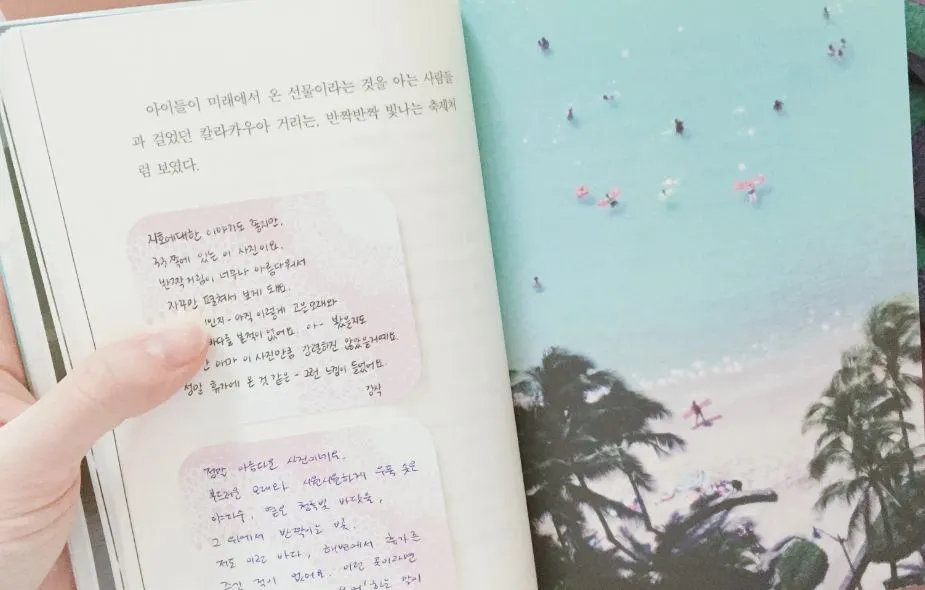 아이들이 미래에서 온 선물이라는 것을 아는 사람들
과 걸었던 칼라카우아 거리는, 반짝반짝 빛나는 축제처
럼 보였다.
지호에대한 이야기도 좋지만,
33쪽에 있는 이 사진이요.
반짝거림이 너무나 아름다워서
자꾸만 펼쳐서 보게 돼요.
아직 이렇게 고운모래와
바다를 본적이 없어요. 아- 봤을지도
아마 이 사진만큼 강렬하진 않았을거예요.
정말 휴가에 온 것 같은- 그런 느낌이 들었어요.
정말 아름다운 사진이네요.
부드러운 모래와 시원시원하게 우뚝 솟은
야자수, 옅은 청록빛 바닷물,
그 위에서 반짝이는 빛.
저도 이런 바다, 해변에서 휴가를
즐긴 적이 없어요. 이런 곳이라면